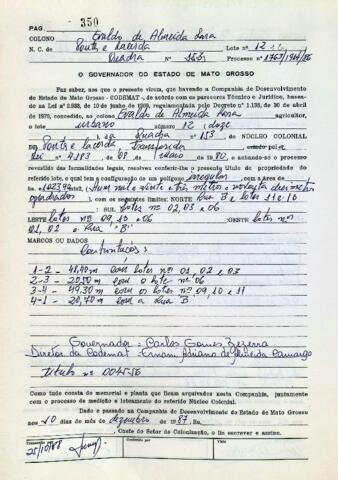 PAG. 350
COLONO Evaldo de Almeida Rosa
N. C. de Pontes e Lacerda Lote nº 12
Quadra nº 153 Processo nº 1767/1984/86
O GOVERNADOR DO ESTADO DE MATO GROSSO
Faz saber, aos que o presente virem, que havendo a Companhia de Desenvolvimento
do Estado de Mato Grosso - CODEMAT -, de acordo com os pareceres Técnico e Jurídico, basea-
do na Lei nº 2.938, de 10 de junho de 1969, regulamentada pelo Decreto nº 1.138, de 30 de abril
de 1970, concedido, ao colono Evaldo de Almeida Rosa agricultor,
o lote urbano número 12 (doze
) na Quadra nº 153, DE NÚCLEO COLONIAL
DO Pontes e Lacerda, transferida criado pela
Lei nº 4.183, de 07 de maio de 80, e achando-se o processo
revestido das formalidades legais, resolveu conferir-lhe o presente título de propriedade do
referido lote, o qual tem a configuração de um polígono irregular, com a área de
ha. 1023,90 (Hum mil e vinte e três metros e noventa decímetros
quadrados), com os seguintes limites: NORTE Rua B e lotes 11 e 10
SUL lotes nº 02, 03 e 06
LESTE lotes nº 09, 10 e 06 OESTE lotes nº
01, 02 e Rua "B"
MARCOS OU DADOS
Confrontações:
1-2 - 48,40m com lotes nº 01, 02 e 03
2-3 - 20,50m com o lote nº 06
3-4 - 49,30m com os lotes nº 09, 10 e 11
4-1 - 20,70m com a Rua B
Governador - Carlos Gomes Bezerra
Diretor da Codemat - Ernani Adriano de Almeida Camargo
Título nº 004556
Como tudo consta do memorial e planta que ficam arquivados nesta Companhia, juntamente
com o processo de medição e loteamento do referido Núcleo Colonial.
Dado e passado na Companhia de Desenvolvimento do Estado de Mato Grosso
aos 10 dias do mês de dezembro de 1987. Eu,
, Chefe do Setor de Colonização, o fiz escrever e assino.
Transcrito por
25/10/88
Conferido por
Visto